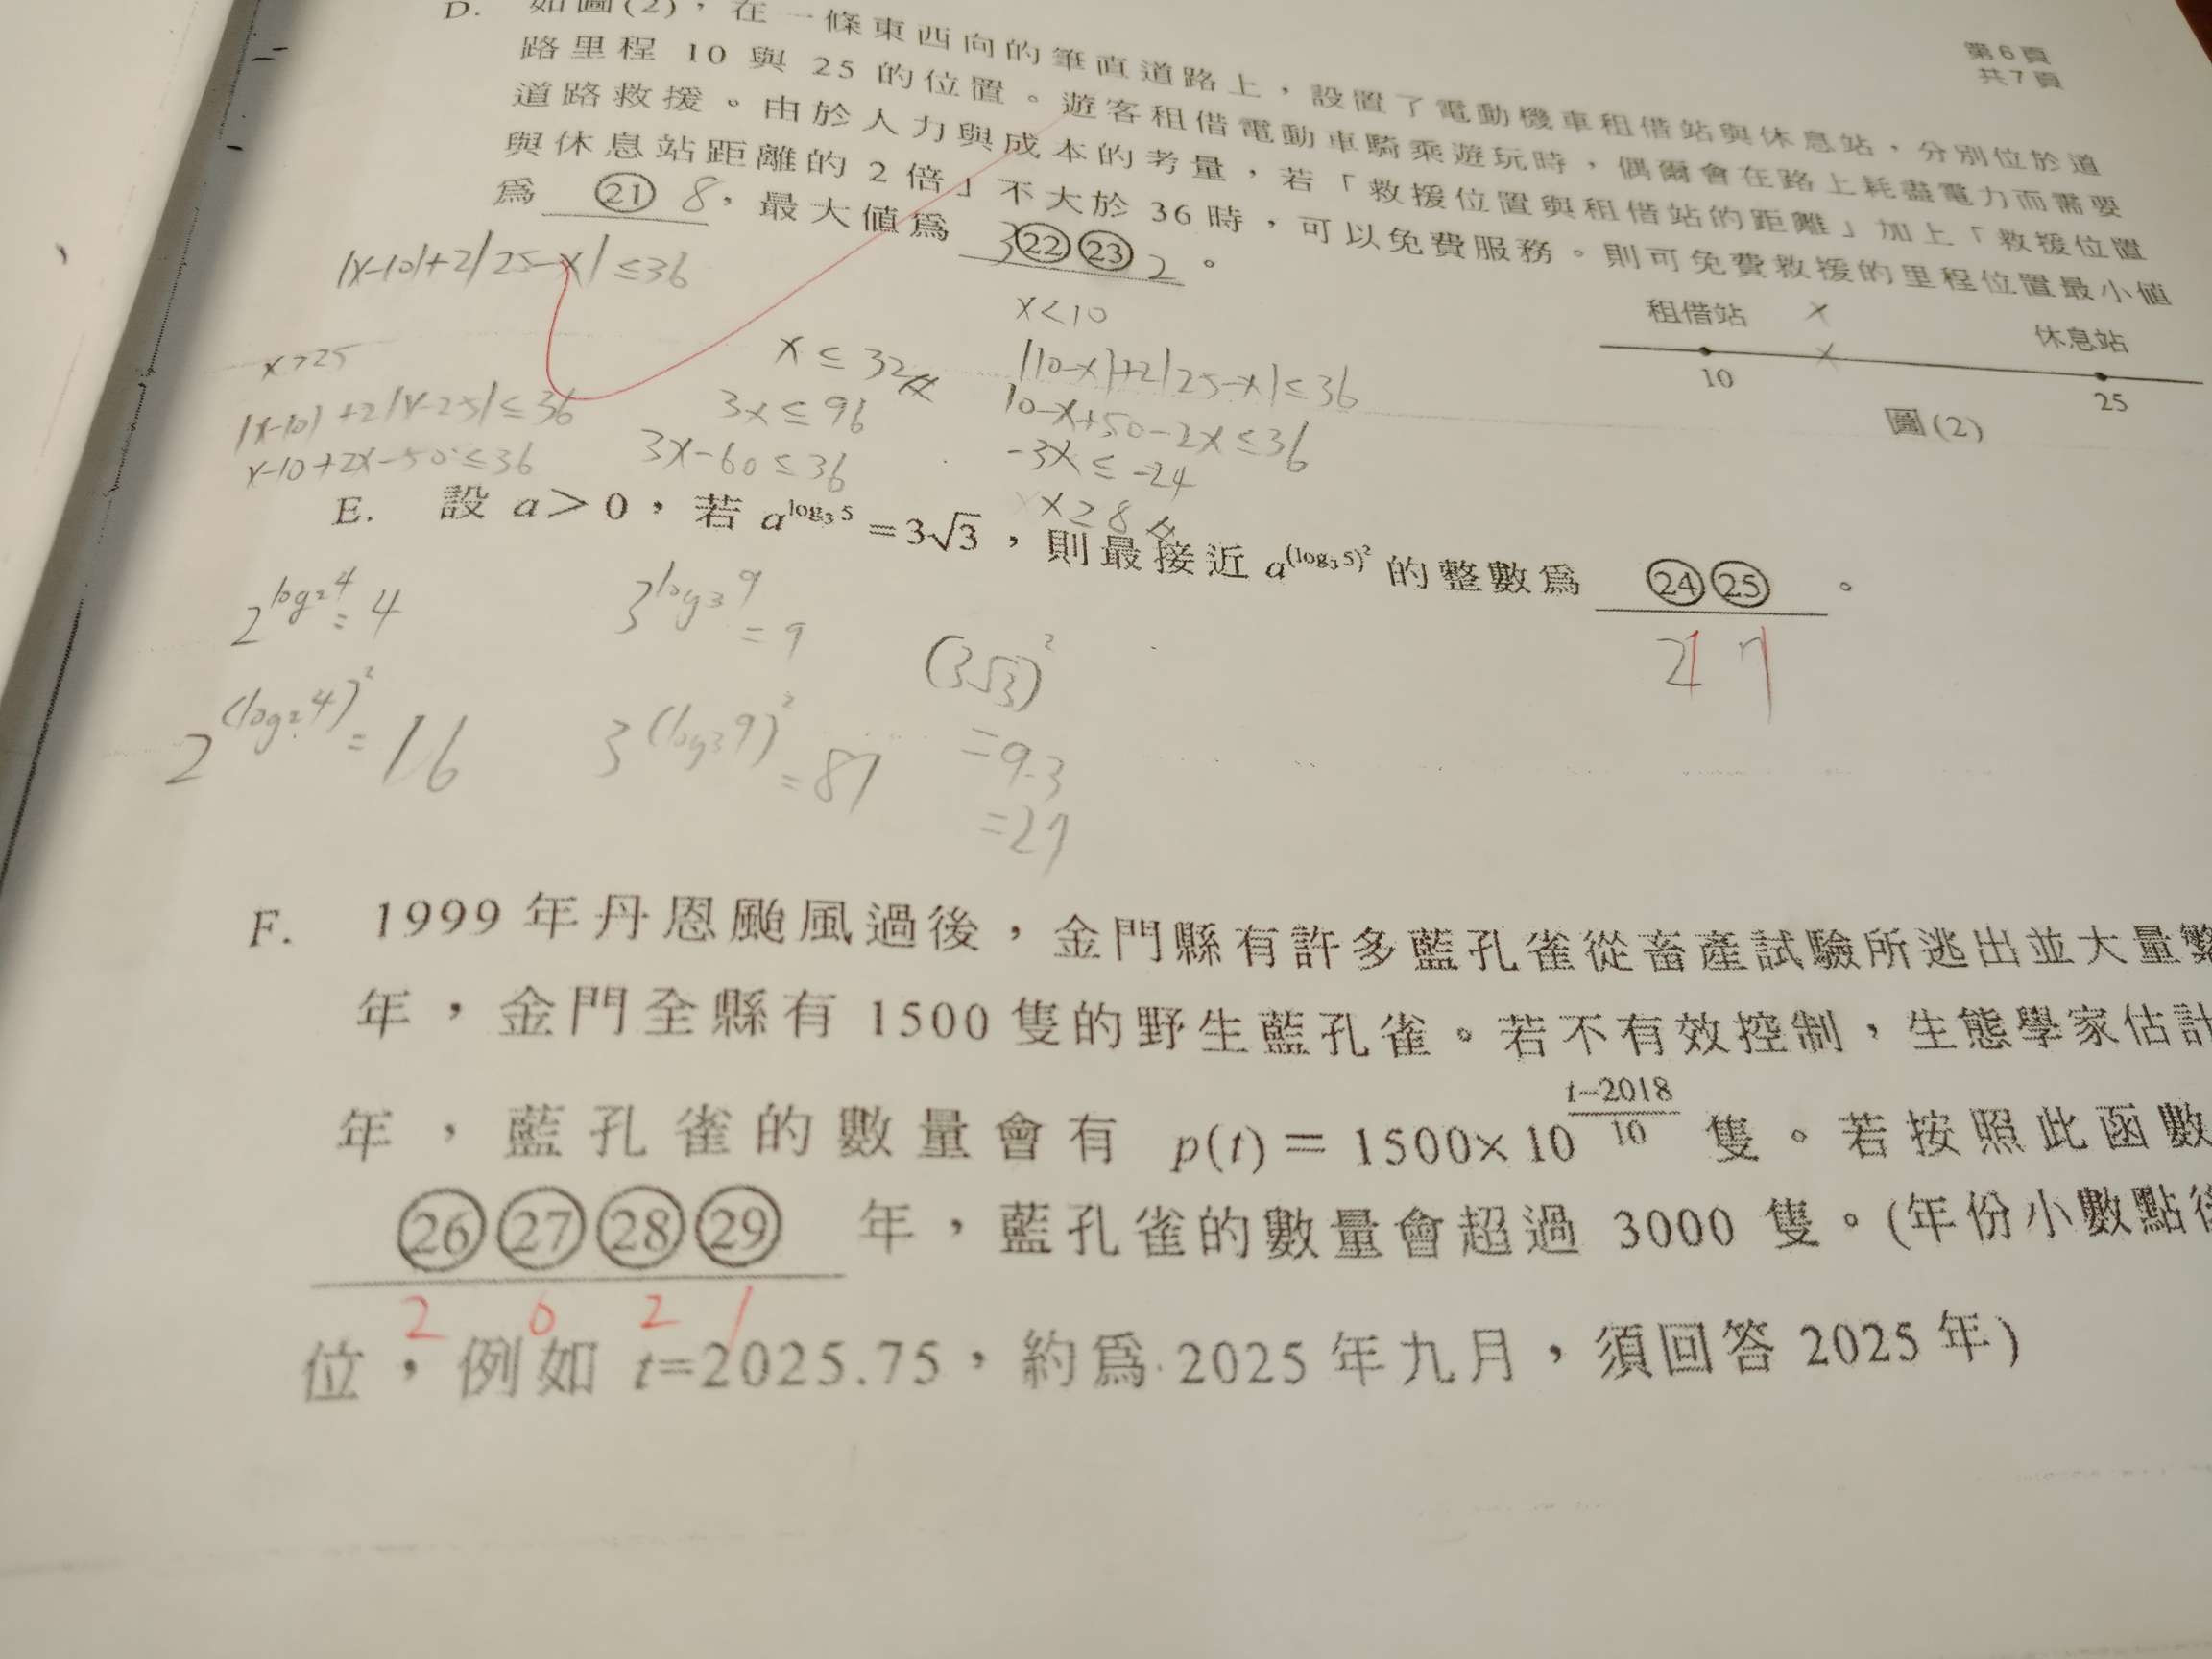 第6頁
共7頁
D. 如圖(2)，在一條東西向的筆直道路上，設置了電動機車租借站與休息站，分別位於道
路里程 10 與 25 的位置。遊客租借電動車騎乘遊玩時，偶爾會在路上耗盡電力而需要
道路救援。由於人力與成本的考量，若「救援位置與租借站的距離」加上「救援位置
與休息站距離的 2 倍」不大於 36 時，可以免費服務。則可免費救援的里程位置最小值
為 ㉑ 8，最大值為 3㉒㉓2。
|x-10|+2|25-x|≤36
x>25
|x-10|+2|x-25|≤36
x-10+2x-50≤36
x≤32
3x≤96
3x-60≤36
x<10
|10-x|+2|25-x|≤36
10-x+50-2x≤36
-3x≤-24
x≥8
租借站 x
休息站
x
10
25
圖(2)
E. 設 a＞0，若 a^{log₃5}＝3√3，則最接近 a^{(log₃5)²} 的整數為 ㉔㉕。
2^{log₂4}=4
3^{log₃9}=9
(3√3)²
2^{(log₂4)²}=16
3^{(log₃9)²}=81
=9·3
=27
F. 1999 年丹恩颱風過後，金門縣有許多藍孔雀從畜產試驗所逃出並大量繁
年，金門全縣有 1500 隻的野生藍孔雀。若不有效控制，生態學家估計
年，藍孔雀的數量會有 p(t)＝1500×10^{\frac{t-2018}{10}} 隻。若按照此函數
㉖㉗㉘㉙ 年，藍孔雀的數量會超過 3000 隻。(年份小數點後
2 0 2 1
位，例如 t=2025.75，約為 2025 年九月，須回答 2025 年)